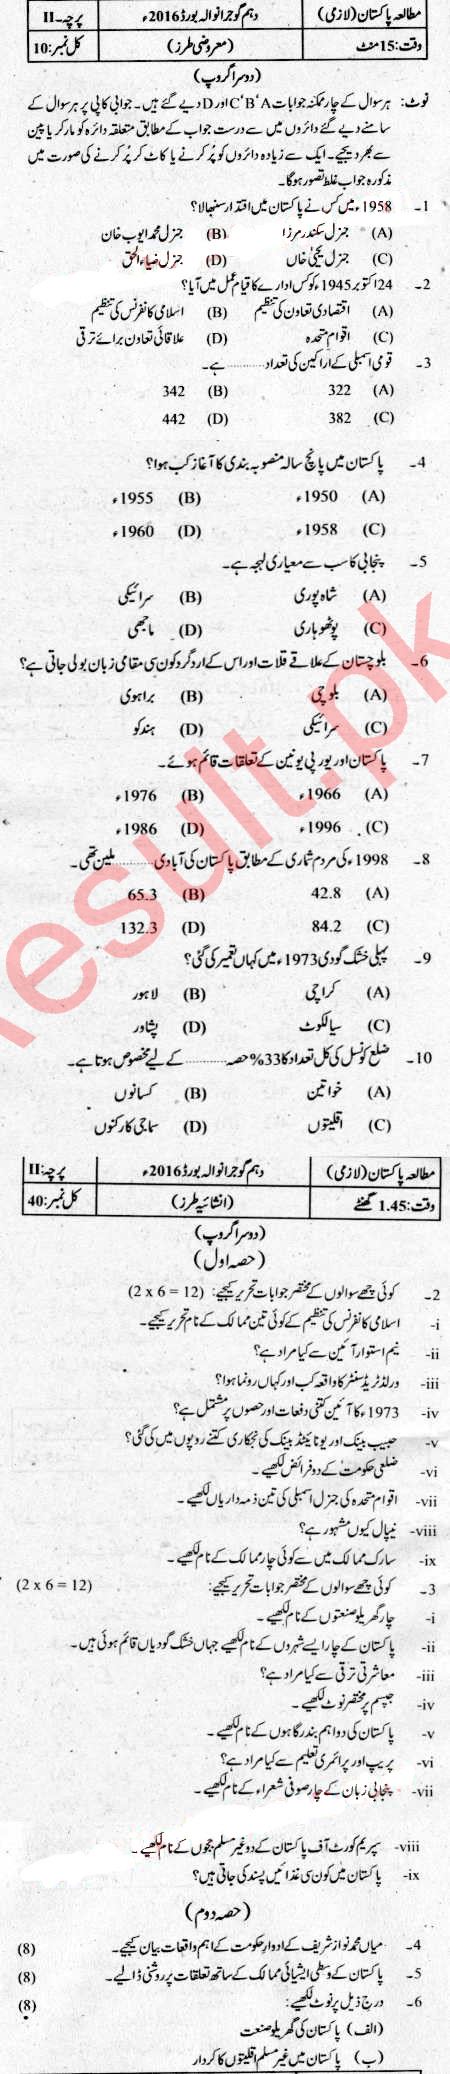 مطالعہ پاکستان (لازمی) دہم گوجرانوالہ بورڈ 2016ء پرچہ-II
وقت:15 منٹ (معروضی طرز) کل نمبر:10
(دوسرا گروپ)
نوٹ: ہر سوال کے چار ممکنہ جوابات A ‘B ‘C اور D دیے گئے ہیں۔ جوابی کاپی پر ہر سوال کے
سامنے دیے گئے دائروں میں سے درست جواب کے مطابق متعلقہ دائرہ کو مارکر یا پین
سے بھر دیجیے۔ ایک سے زیادہ دائروں کو پُر کرنے یا کاٹ کر پُر کرنے کی صورت میں
مذکورہ جواب غلط تصور ہوگا۔
1۔ 1958ء میں کس نے پاکستان میں اقتدار سنبھالا؟
(A) جنرل سکندر مرزا (B) جنرل محمد ایوب خان
(C) جنرل یحییٰ خاں (D) جنرل ضیاء الحق
2۔ 24 اکتوبر 1945ء کو کس ادارے کا قیام عمل میں آیا؟
(A) اقتصادی تعاون کی تنظیم (B) اسلامی کانفرنس کی تنظیم
(C) اقوام متحدہ (D) علاقائی تعاون برائے ترقی
3۔ قومی اسمبلی کے اراکین کی تعداد .......... ہے۔
(A) 322 (B) 342
(C) 382 (D) 442
4۔ پاکستان میں پانچ سالہ منصوبہ بندی کا آغاز کب ہوا؟
(A) 1950ء (B) 1955ء
(C) 1958ء (D) 1960ء
5۔ پنجابی کا سب سے معیاری لہجہ ہے۔
(A) شاہ پوری (B) سرائیکی
(C) پوٹھوہاری (D) ماجھی
6۔ بلوچستان کے علاقے قلات اور اس کے اردگرد کون سی مقامی زبان بولی جاتی ہے؟
(A) بلوچی (B) براہوی
(C) سرائیکی (D) ہندکو
7۔ پاکستان اور یورپی یونین کے تعلقات قائم ہوئے۔
(A) 1966ء (B) 1976ء
(C) 1996ء (D) 1986ء
8۔ 1998ء کی مردم شماری کے مطابق پاکستان کی آبادی .......... ملین تھی۔
(A) 42.8 (B) 65.3
(C) 84.2 (D) 132.3
9۔ پہلی خشک گودی 1973ء میں کہاں تعمیر کی گئی؟
(A) کراچی (B) لاہور
(C) سیالکوٹ (D) پشاور
10۔ ضلع کونسل کی کل تعداد کا 33% حصہ .......... کے لیے مخصوص ہوتا ہے۔
(A) خواتین (B) کسانوں
(C) اقلیتوں (D) سماجی کارکنوں
مطالعہ پاکستان (لازمی) دہم گوجرانوالہ بورڈ 2016ء پرچہ:II
وقت:1.45 گھنٹے (انشائیہ طرز) کل نمبر:40
(دوسرا گروپ)
(حصہ اول)
2۔ کوئی چھے سوالوں کے مختصر جوابات تحریر کیجیے: (2 x 6 = 12)
i- اسلامی کانفرنس کی تنظیم کے کوئی تین ممالک کے نام تحریر کیجیے۔
ii- نیم استوار آئین سے کیا مراد ہے؟
iii- ورلڈ ٹریڈ سنٹر کا واقعہ کب اور کہاں رونما ہوا؟
iv- 1973ء کا آئین کتنی دفعات اور حصوں پر مشتمل ہے؟
v- حبیب بینک اور یونائیٹڈ بینک کی نجکاری کتنے روپوں میں کی گئی؟
vi- ضلعی حکومت کے دو فرائض لکھیے۔
vii- اقوام متحدہ کی جنرل اسمبلی کی تین ذمہ داریاں لکھیے۔
viii- نیپال کیوں مشہور ہے؟
ix- سارک ممالک میں سے کوئی چار ممالک کے نام لکھیے۔
3۔ کوئی چھے سوالوں کے مختصر جوابات تحریر کیجیے: (2 x 6 = 12)
i- چار گھریلو صنعتوں کے نام لکھیے۔
ii- پاکستان کے چار ایسے شہروں کے نام لکھیے جہاں خشک گودیاں قائم ہوئی ہیں۔
iii- معاشرتی ترقی سے کیا مراد ہے؟
iv- جپسم پر مختصر نوٹ لکھیے۔
v- پاکستان کی دو اہم بندرگاہوں کے نام لکھیے۔
vi- پریپ اور پرائمری تعلیم سے کیا مراد ہے؟
vii- پنجابی زبان کے چار صوفی شعراء کے نام لکھیے۔
viii- سپریم کورٹ آف پاکستان کے دو غیر مسلم ججوں کے نام لکھیے۔
ix- پاکستان میں کون سی غذائیں پسند کی جاتی ہیں؟
(حصہ دوم)
4۔ میاں محمد نواز شریف کے ادوار حکومت کے اہم واقعات بیان کیجیے۔ (8)
5۔ پاکستان کے وسطی ایشیائی ممالک کے ساتھ تعلقات پر روشنی ڈالیے۔ (8)
6۔ درج ذیل پر نوٹ لکھیے: (8)
(الف) پاکستان کی گھریلو صنعت
(ب) پاکستان میں غیر مسلم اقلیتوں کا کردار
esult.pk